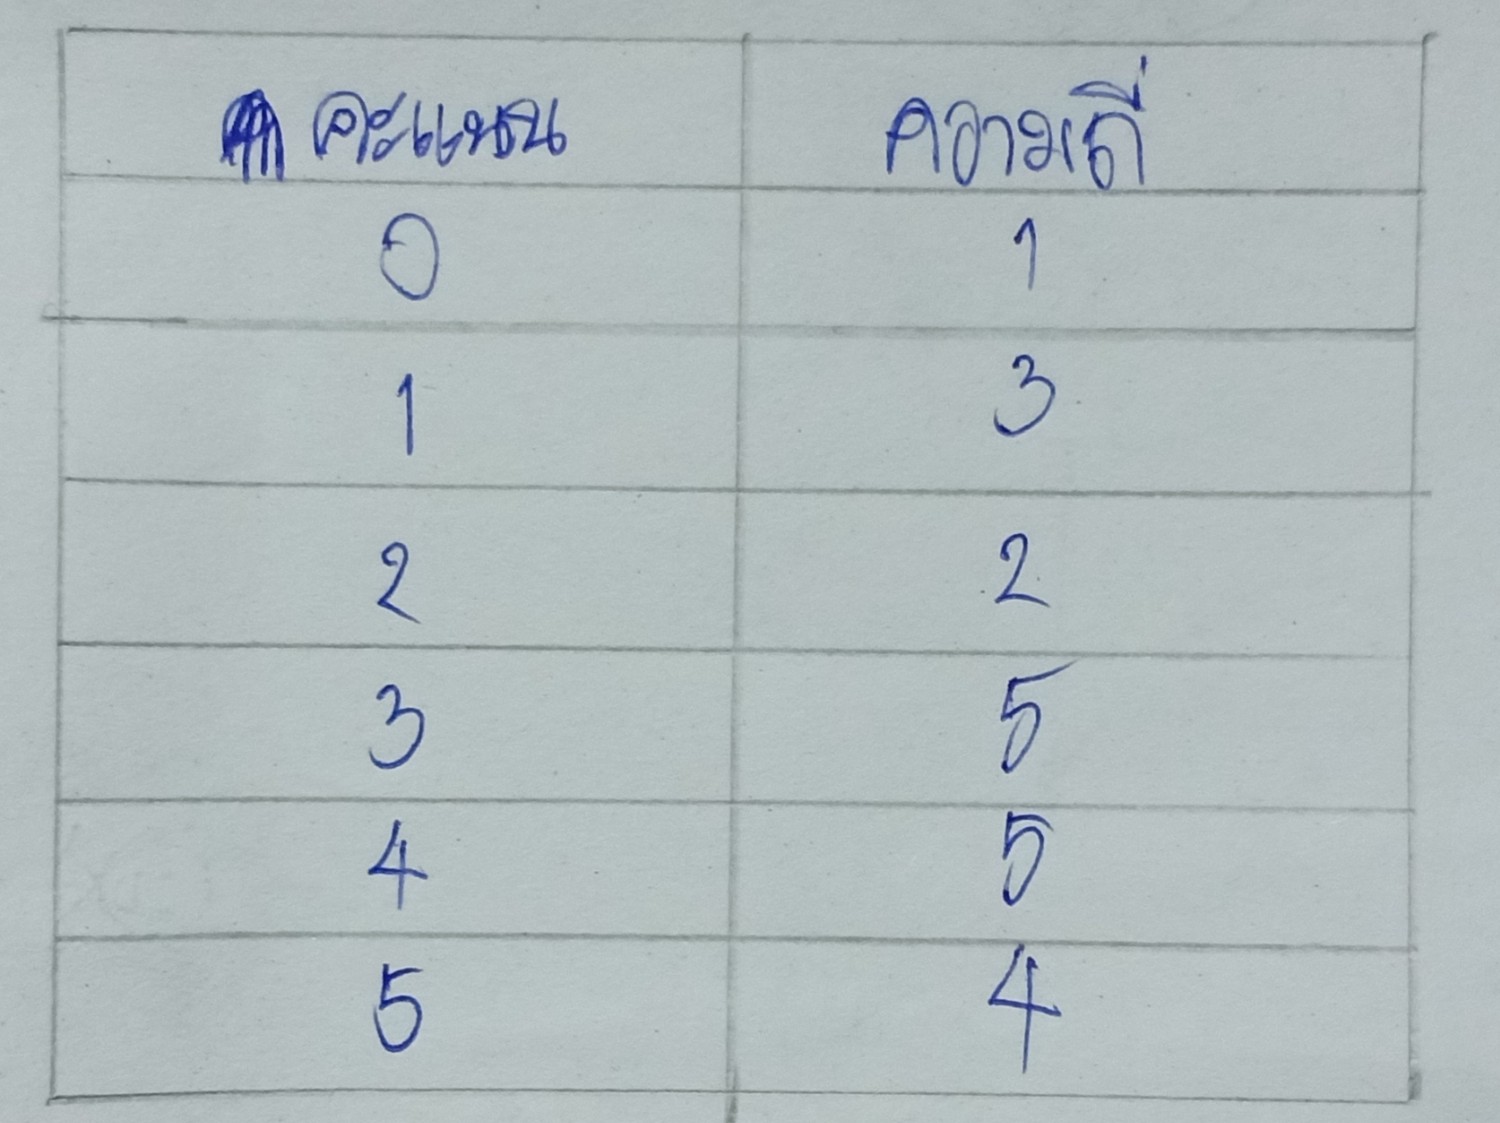 คะแนน ความถี่
0 1
1 3
2 2
3 5
4 5
5 4